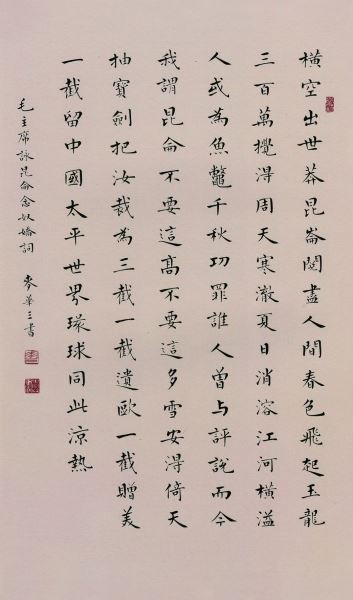 橫空出世莽昆崙閱盡人間春色飛起玉龍
三百萬攪得周天寒澈夏日消溶江河橫溢
人或為魚鼈千秋功罪誰人曾與評說而今
我謂昆侖不要這高不要這多雪安得倚天
抽寶劍把汝裁為三截一截遺歐一截贈美
一截留中國太平世界環球同此涼熱
毛主席詠昆侖念奴嬌詞 麥華三書